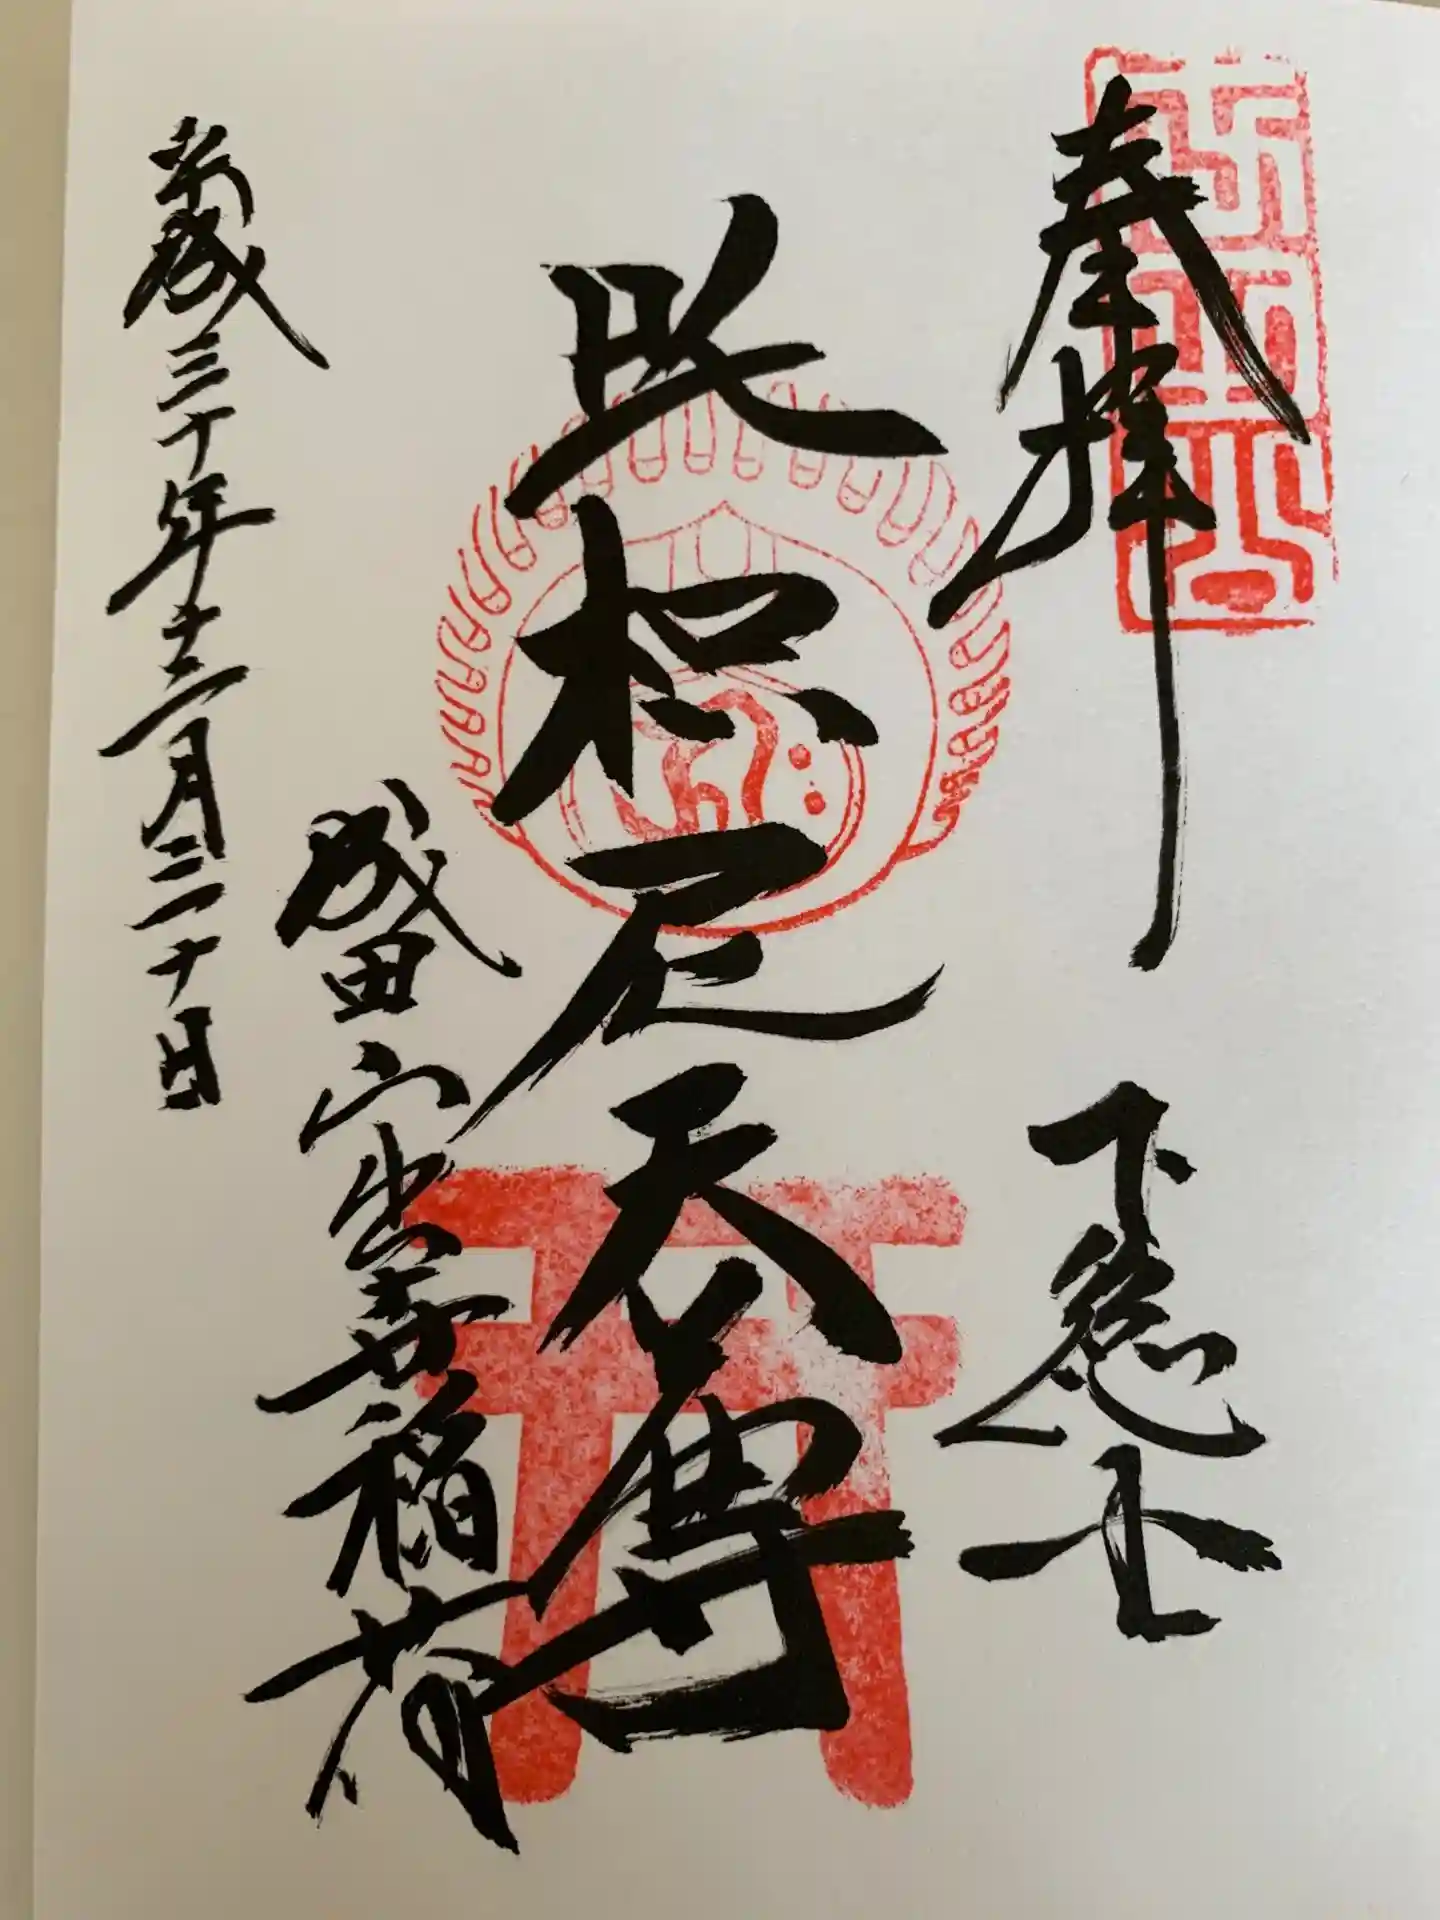 奉拝 下総
吒枳尼天尊
成田山出世稲荷
平成三十年十二月三十日